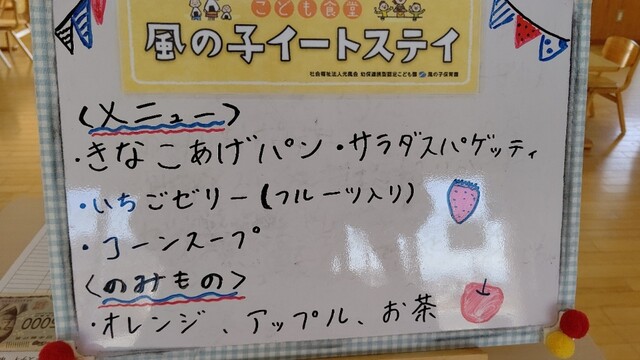 こども食堂
風の子イートステイ
社会福祉法人光風会 幼保連携型認定こども園 風の子保育園
<メニュー>
・きなこあげパン・サラダスパゲッティ
・いちごゼリー(フルーツ入り)
・コーンスープ
<のみもの>
・オレンジ、アップル、お茶
5000